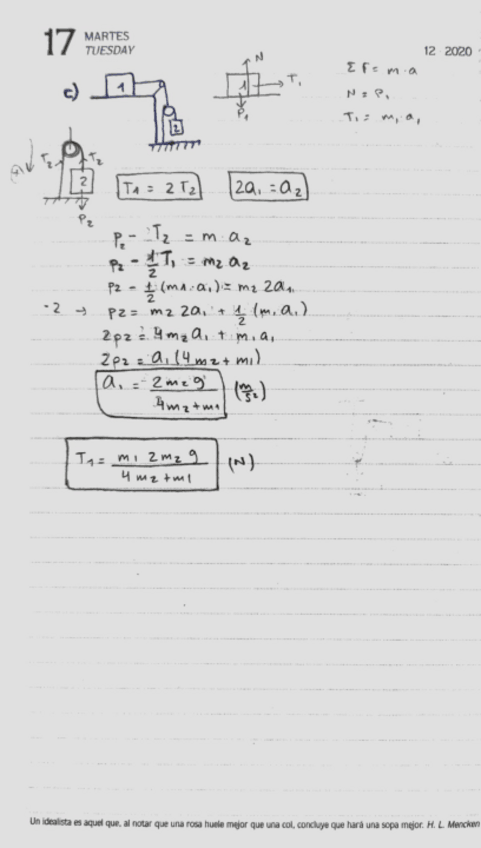 17 MARTES
TUESDAY
12 2020
c)
1
2
N
1
T₁
P₁
Σ F = m · a
N = P₁
T₁ = m₁ · a₁
T₂
T₂
2
P₂
T₁ = 2 T₂
2a₁ = a₂
P₂ - T₂ = m a₂
P₂ - 1/2 T₁ = m₂ a₂
P₂ - 1/2 (m₁ · a₁) = m₂ 2a₁
·2 → P₂ = m₂ 2a₁ + 1/2 (m₁ a₁)
2P₂ = 4m₂ a₁ + m₁ a₁
2P₂ = a₁ (4m₂ + m₁)
a₁ = 2m₂ g / 4m₂ + m₁ (m/s²)
T₁ = m₁ 2m₂ g / 4m₂ + m₁ (N)
Un idealista es aquel que, al notar que una rosa huele mejor que una col, concluye que hará una sopa mejor. H. L. Mencken